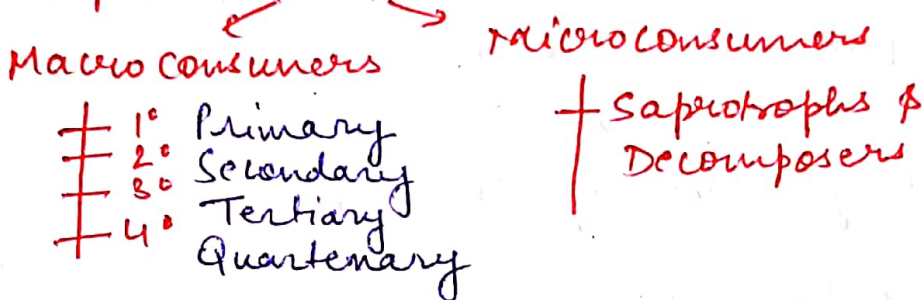 Macro Consumers
1° Primary
2° Secondary
3° Tertiary
4° Quartenary
Microconsumers
Saprotrophs &
Decomposers